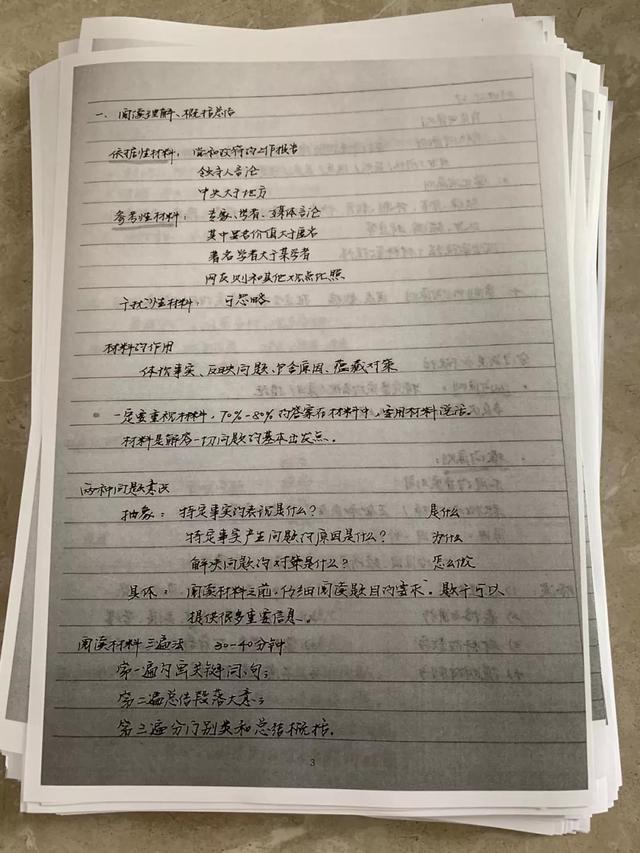 一、阅读理解、概括总结
依据性材料：党和政府的工作报告
领导人言论
中央大于地方
参考性材料：专家、学者、媒体言论
其中显名价值大于匿名
著名学者大于某学者
网友则和其他观点比照
干扰性材料：可忽略
材料的作用
体现事实、反映问题、包含原因、蕴藏对策
一定要重视材料，70%-80%的答案在材料中，要用材料说话。
材料是解答一切问题的基本出发点。
两种问题意识
抽象：特定事实的表现是什么？ 是什么
特定事实产生问题的原因是什么？ 为什么
解决问题的对策是什么？ 怎么做
具体：阅读材料之前，仔细阅读题目的要求。题干可以
提供很多重要信息。
阅读材料三遍法 30-40分钟
第一遍勾画关键词、句；
第二遍总结段落大意；
第三遍分门别类和总结概括。
3